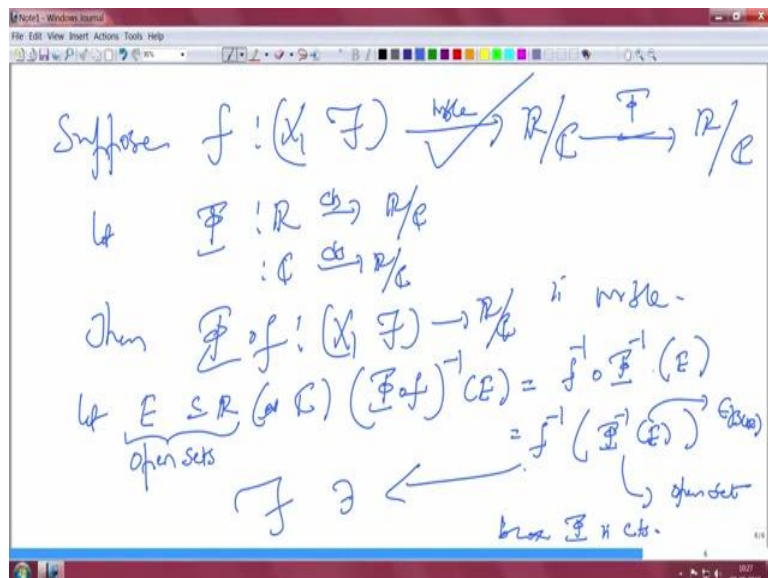 Note1 - Windows Journal
File Edit View Insert Actions Tools Help
Suppose f : (X, F) msble→ R/C Φ→ R/C
let Φ : R cts→ R/C
: C cts→ R/C
Then Φ∘f : (X, F) → R/C is msble.
let E ⊆ R (or C) (Φ∘f)⁻¹(E) = f⁻¹∘Φ⁻¹(E)
open sets
= f⁻¹(Φ⁻¹(E))
open set
F ∋ ←
Φ is cts.
6
6/6
10:27